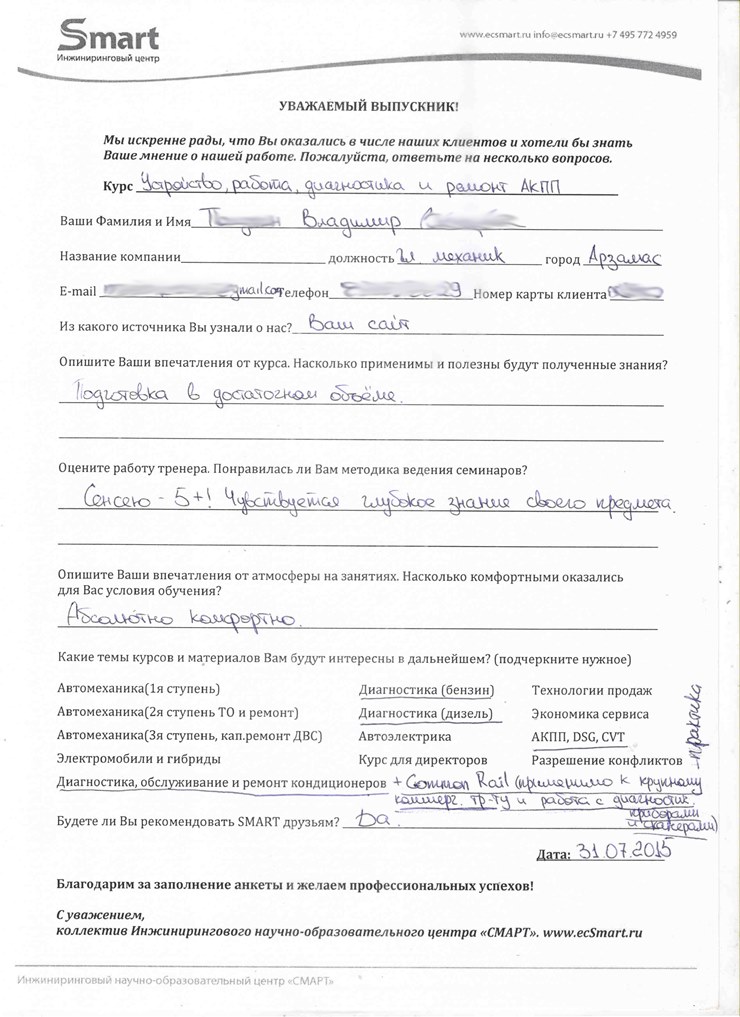 Smart
Инжиниринговый центр
www.ecsmart.ru info@ecsmart.ru +7 495 772 4959
УВАЖАЕМЫЙ ВЫПУСКНИК!
Мы искренне рады, что Вы оказались в числе наших клиентов и хотели бы знать
Ваше мнение о нашей работе. Пожалуйста, ответьте на несколько вопросов.
Курс Устройство, работа, диагностика и ремонт АКПП
Ваши Фамилия и Имя Владимир
Название компании должность Гл. механик город Арзамас
E-mail gmail.com Телефон 29 Номер карты клиента
Из какого источника Вы узнали о нас? Ваш сайт
Опишите Ваши впечатления от курса. Насколько применимы и полезны будут полученные знания?
Подготовка в достаточном объёме.
Оцените работу тренера. Понравилась ли Вам методика ведения семинаров?
Сенсею - 5+! Чувствуется глубокое знание своего предмета.
Опишите Ваши впечатления от атмосферы на занятиях. Насколько комфортными оказались
для Вас условия обучения?
Абсолютно комфортно.
Какие темы курсов и материалов Вам будут интересны в дальнейшем? (подчеркните нужное)
Автомеханика(1я ступень) Диагностика (бензин) Технологии продаж
Автомеханика(2я ступень ТО и ремонт) Диагностика (дизель) Экономика сервиса
Автомеханика(3я ступень, кап.ремонт ДВС) Автоэлектрика АКПП, DSG, CVT - практика
Электромобили и гибриды Курс для директоров Разрешение конфликтов
Диагностика, обслуживание и ремонт кондиционеров + Common Rail (применимо к крупному
коммерг. тр-ту и работа с диагностик.
приборами
и сканерами)
Будете ли Вы рекомендовать SMART друзьям? Да.
Дата: 31.07.2015
Благодарим за заполнение анкеты и желаем профессиональных успехов!
С уважением,
коллектив Инжинирингового научно-образовательного центра «СМАРТ». www.ecSmart.ru
Инжиниринговый научно-образовательный центр «СМАРТ»